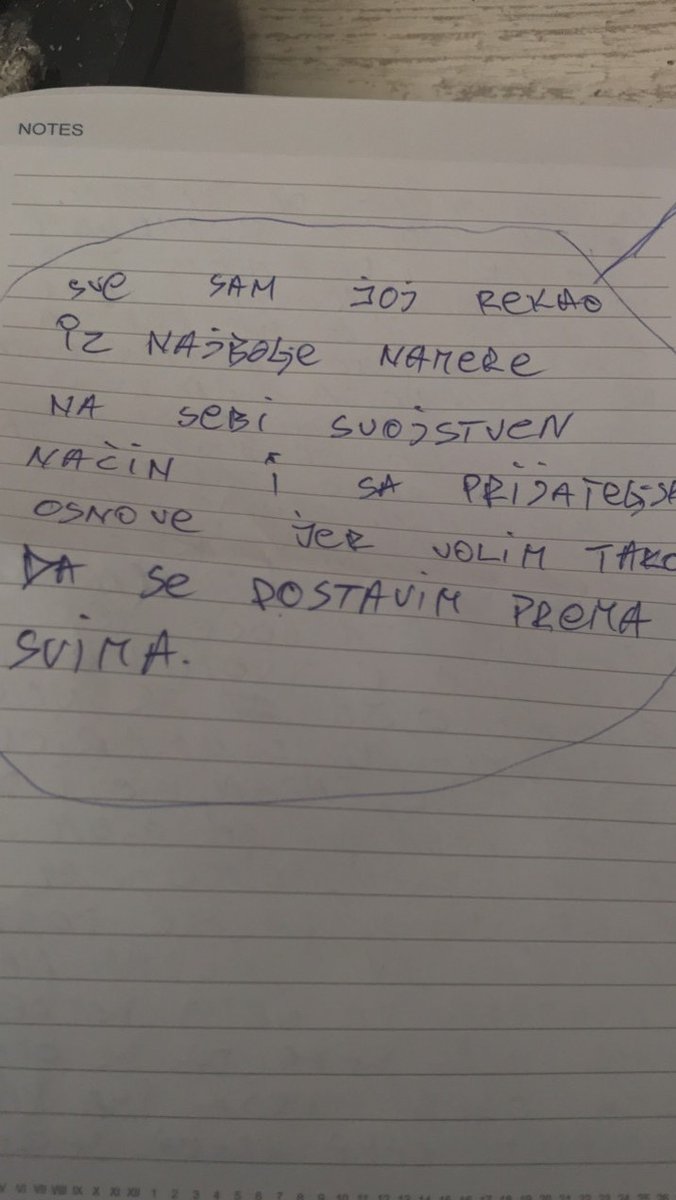 NOTES
sve SAM joj REKAO
iz NAJBOLJE NAMERE
NA SEBI SVOJSTVEN
NAČIN i SA PRIJATELJSK
OSNOVE JER VOLIM TAKO
DA SE POSTAVIM PREMA
SVIMA.